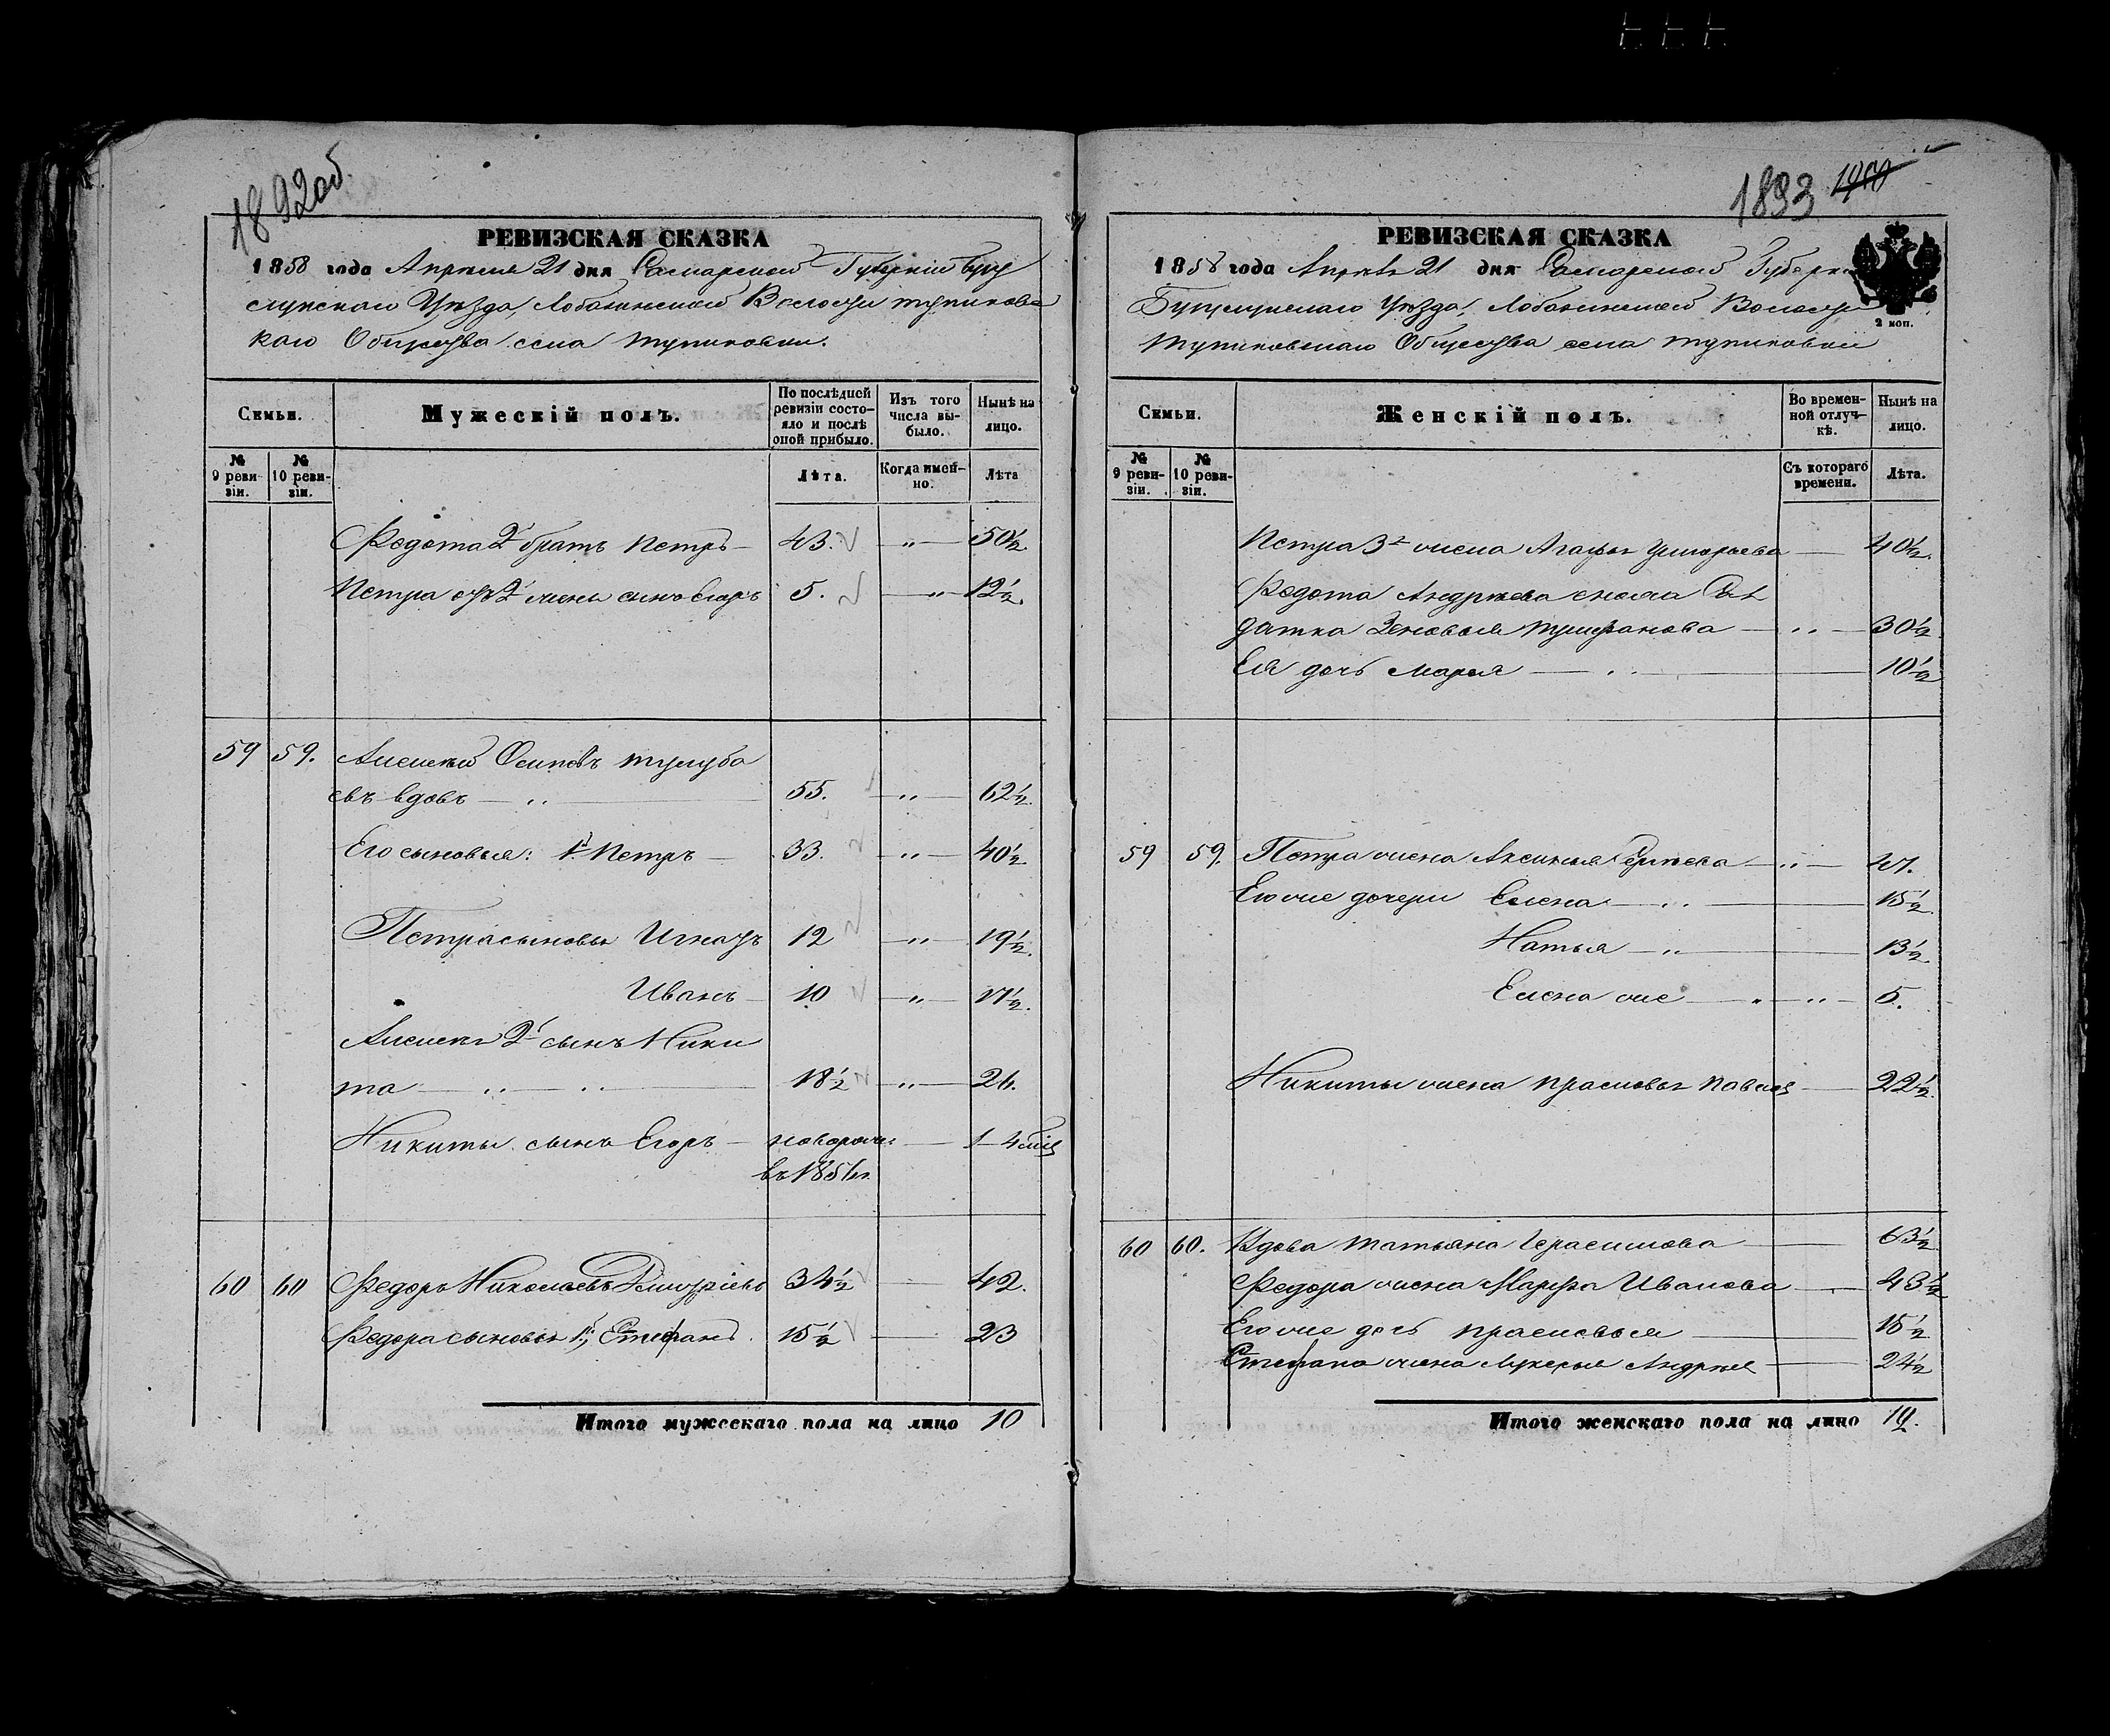 1892об.
РЕВИЗСКАЯ СКАЗКА
1858 года Апреля 21 дня Самарской Губернии Бугу
слунскаго Уѣзда, Лобазинской Волости Тупиковс
каго Общества села Тупиковки.
Семьи.
Мужескій полъ.
По послѣдней ревизіи состояло и послѣ оной прибыло.
Изъ того числа выбыло.
Нынѣ на лицо.
№ 9 ревизіи.
№ 10 ревизіи.
Лѣта.
Когда именно.
Лѣта
Федота 2й братъ Петръ 43. " 50½
Петра отъ 2й жены сынъ Егоръ 5. " 12½
59 59. Алексѣй Осиповъ Тулуба
евъ вдовъ " 55. " 62½
Его сыновья: 1й Петръ 33. " 40½
Петра сыновья Игнатъ 12 " 19½
Иванъ 10 " 17½
Алексѣя 2й сынъ Ники
та " " 18½ " 26.
Никиты сынъ Егоръ новорожд 1 4 мѣс
въ 1856 г.
60 60 Федоръ Николаевъ Дмитріевъ 34½ 42.
Федора сыновья 1й, Степанъ 15½ 23
Итого мужескаго пола на лицо 10
1893
РЕВИЗСКАЯ СКАЗКА
1858 года Апрѣля 21 дня Самарской Губерн
Бугуслунскаго Уѣзда, Лобазинской Волости
Тупиковскаго Общества села Тупиковки
2 коп.
Семьи.
Женскій полъ.
Во временной отлучкѣ.
Нынѣ на лицо.
№ 9 ревизіи.
№ 10 ревизіи.
Съ котораго времени.
Лѣта.
Петра 3я жена Агафья Григорьева 40½
Федота Андреева сноха Сол
датка Зеновья Трифанова " 30½
Ея дочь Марья " 10½
59 59. Петра жена Аксинья Сергѣева " 47.
Его же дочери Елена " 15½
Наталья " 13½
Елена же " " 5.
Никиты жена Прасковья Павлов 22½
60 60. Вдова Татьяна Герасимова 63½
Федора жена Марфа Иванова 43½
Его же дочь Прасковья 15½
Степана жена Лукерья Андрѣев 24½
Итого женскаго пола на лицо 12.